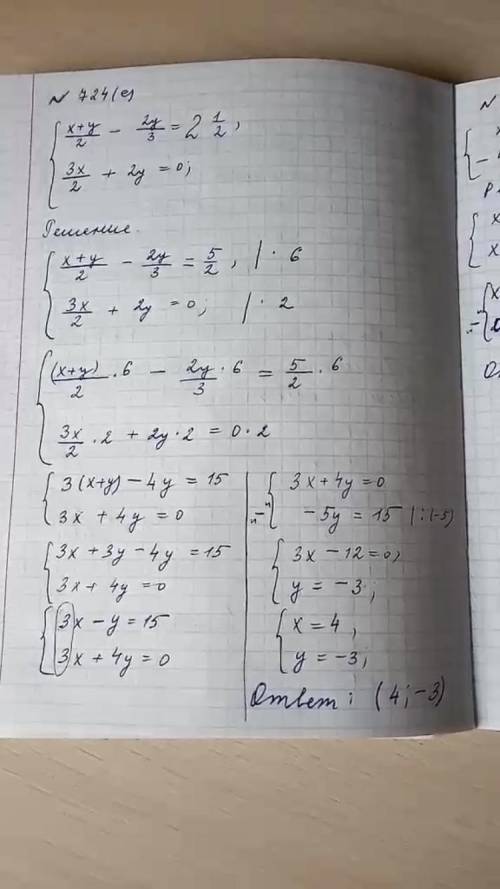 № 724(е)
{ (x+y)/2 − 2y/3 = 2 1/2,
3x/2 + 2y = 0;
Решение.
{ (x+y)/2 − 2y/3 = 5/2, | · 6
3x/2 + 2y = 0; | · 2
{ (x+y)/2 · 6 − 2y·6/3 = 5/2 · 6
3x/2 · 2 + 2y · 2 = 0 · 2
{ 3(x+y) − 4y = 15
3x + 4y = 0
{ 3x + 3y − 4y = 15
3x + 4y = 0
{ 3x − y = 15
3x + 4y = 0
"−" { 3x + 4y = 0
−5y = 15 | : (−5)
{ 3x − 12 = 0,
y = −3;
{ x = 4,
y = −3;
Ответ: (4; −3)
№
{ x
−
Р
{ x
x
"−" { x
От